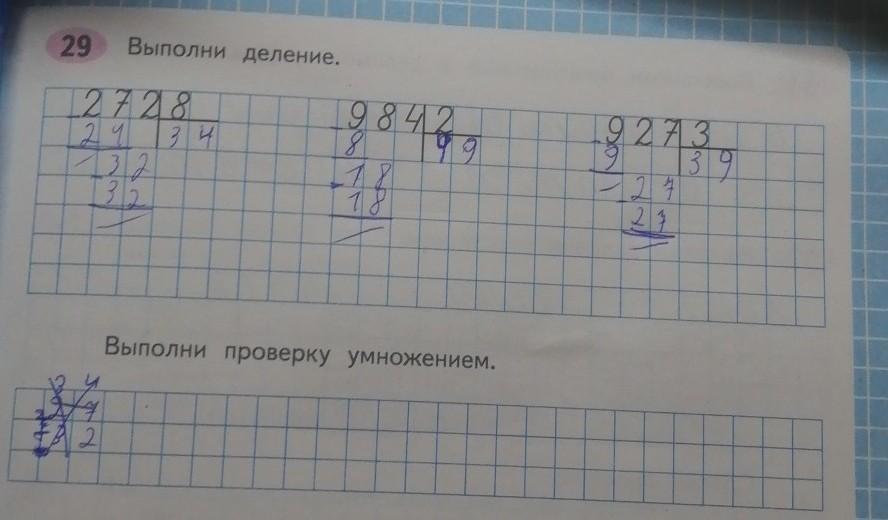 29 Выполни деление.
272 8 984 2 927 3
24 34 8 49 9 39
32 18 27
32 18 27
Выполни проверку умножением.
3 4
7
2